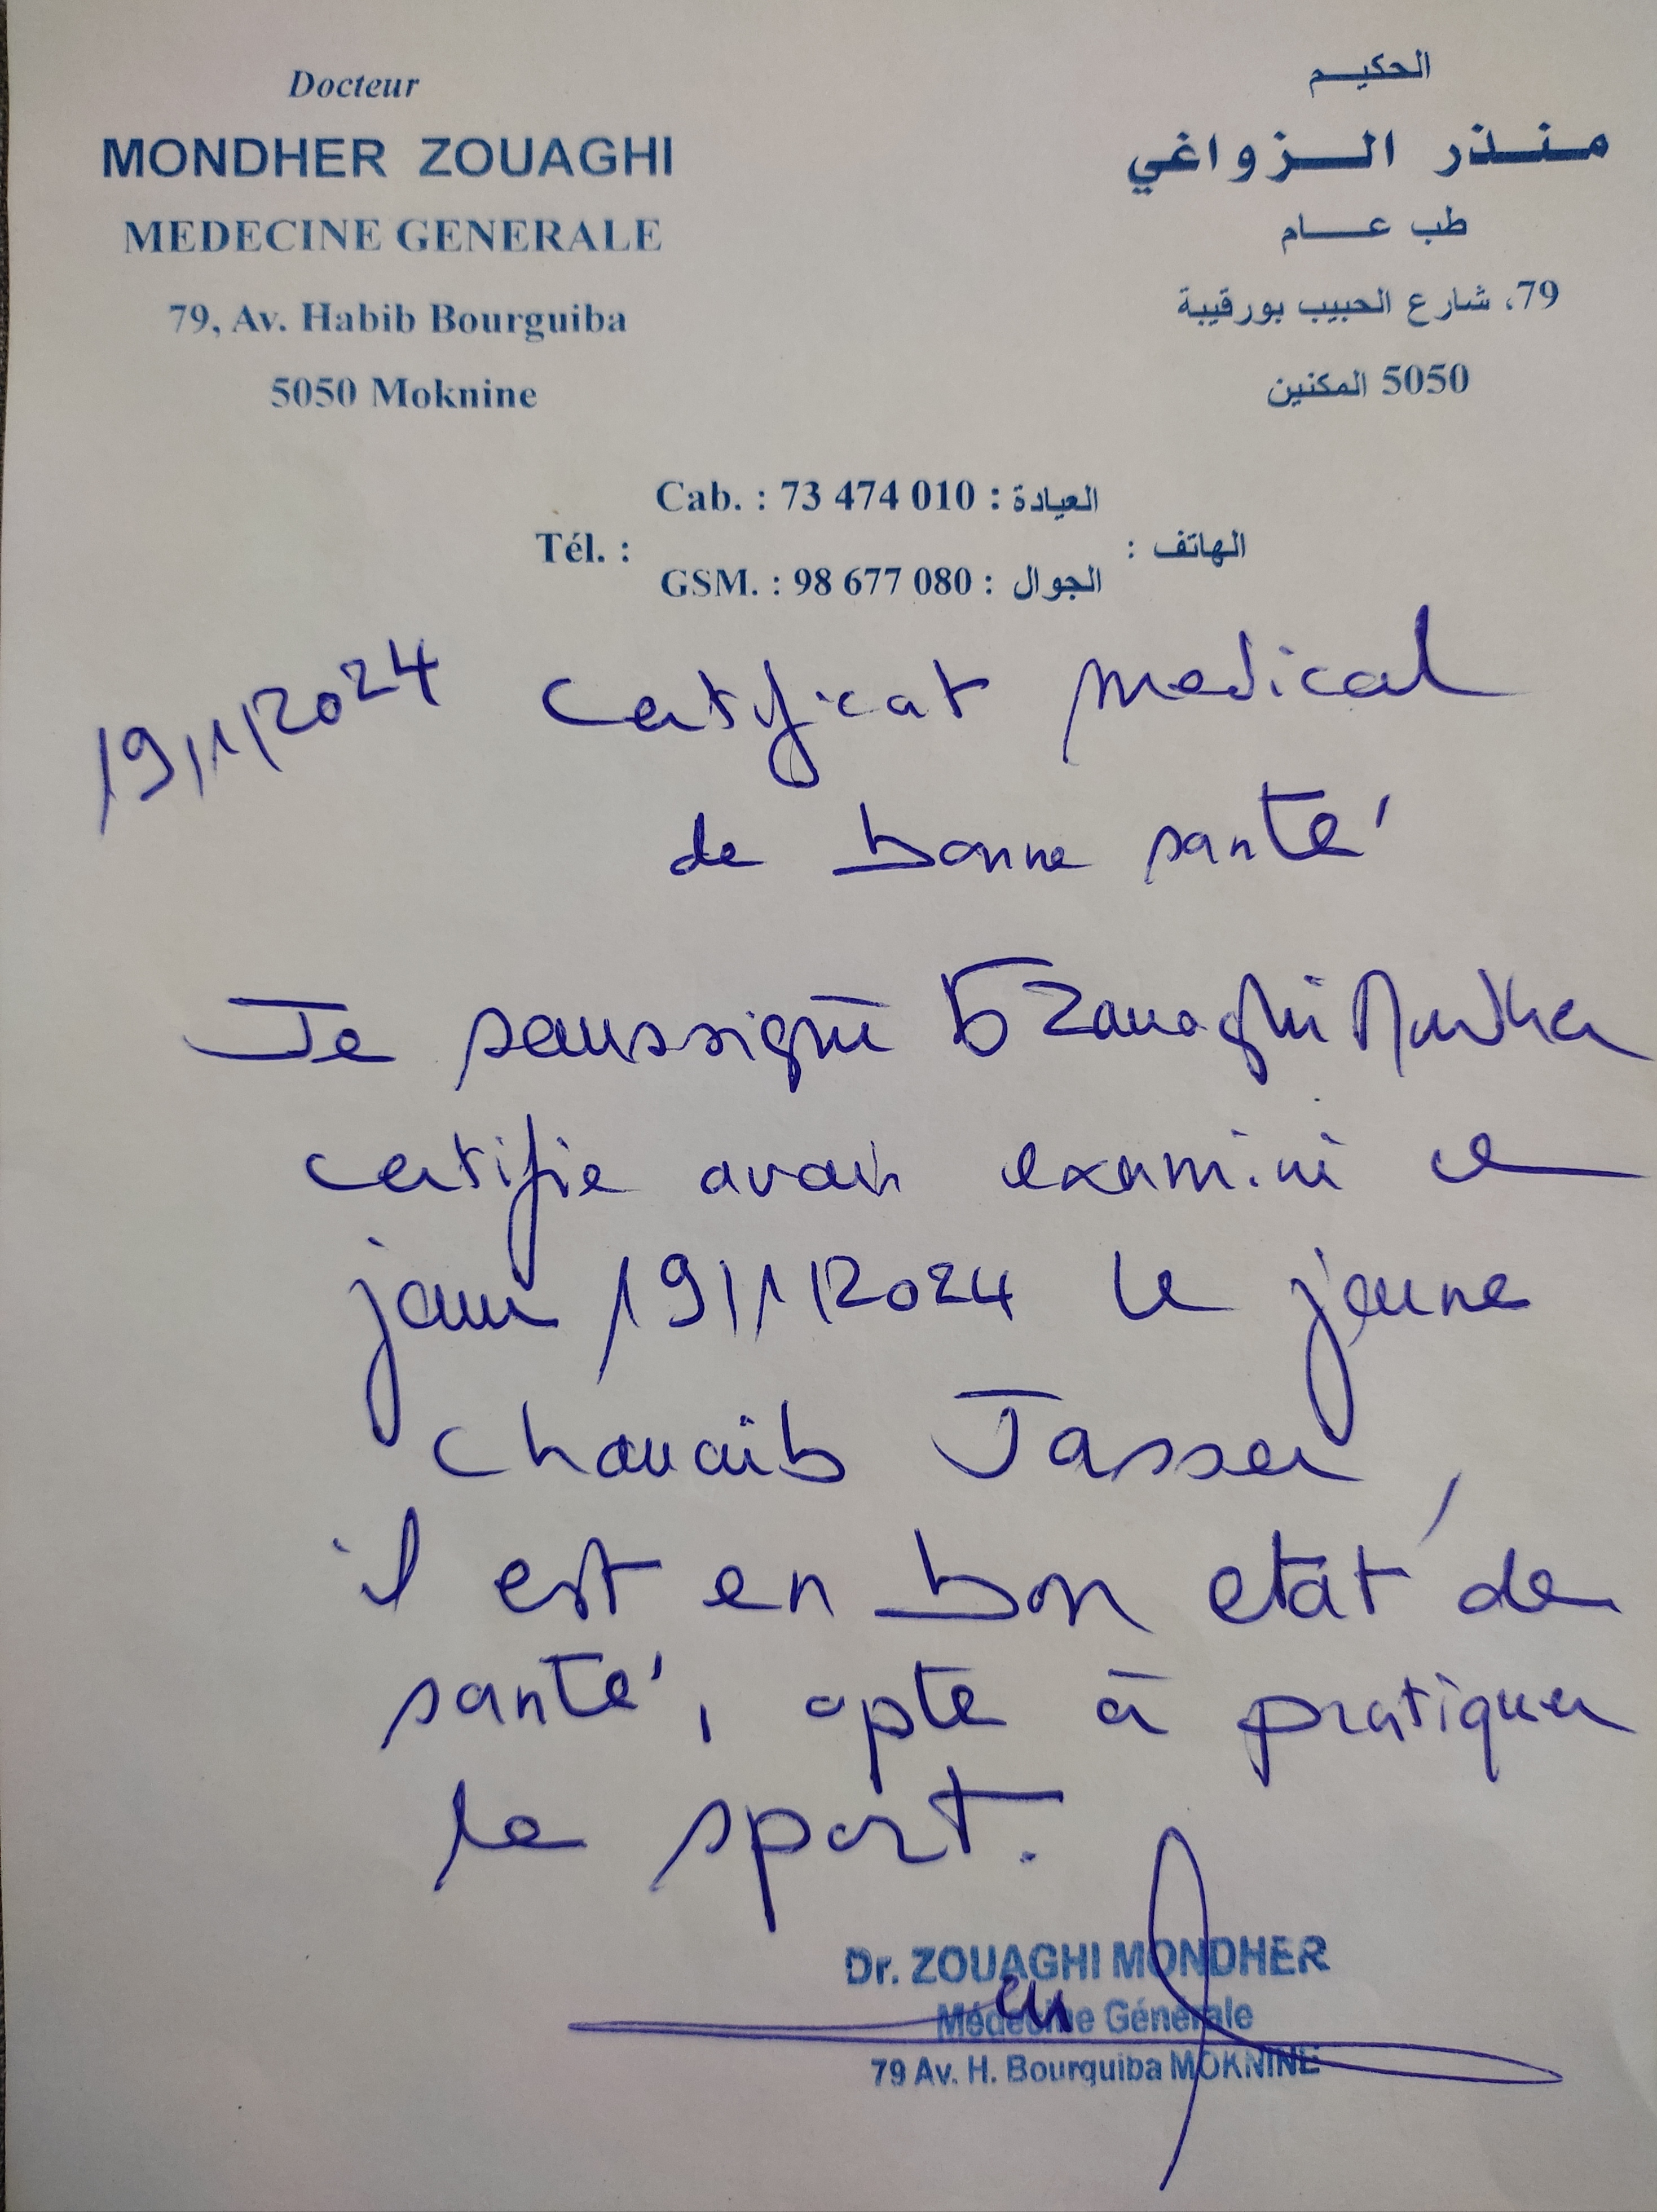 Docteur
MONDHER ZOUAGHI
MEDECINE GENERALE
79, Av. Habib Bourguiba
5050 Moknine
الحكيم
منذر الزواغي
طب عام
79، شارع الحبيب بورقيبة
5050 المكنين
Cab. : 73 474 010 : العيادة
Tél. : الهاتف :
GSM. : 98 677 080 : الجوال
19/1/2024 Certificat medical
de bonne santé
Je soussigné Dr Zouaghi Mondher
certifie avoir examiné ce
jour 19/1/2024 le jeune
Chouaib Jasser,
il est en bon etat de
santé, apte à pratiquer
le sport.
Dr. ZOUAGHI MONDHER
Médecine Générale
79 Av. H. Bourguiba MOKNINE